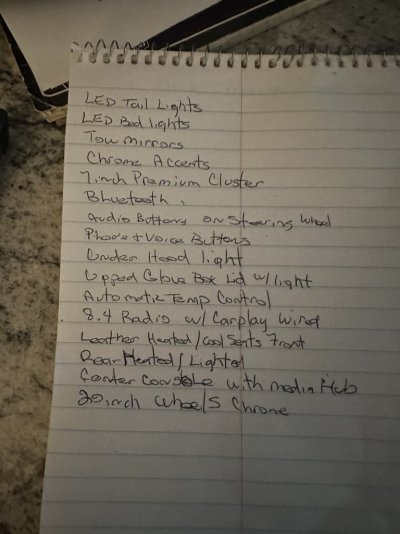 LED Tail Lights
LED Bed lights
Tow mirrors
Chrome Accents
7inch Premium Cluster
Bluetooth.
Audio Buttons on Steering wheel
Phone + Voice Buttons
Under Hood light
Upped Glove Box Lid w/ light
Automatic Temp Control
8.4 Radio w/ Carplay wired
Leather Heated/Cool Seats Front
Rear Heated / Lighter
Center Console with media Hub
20inch wheels Chrome